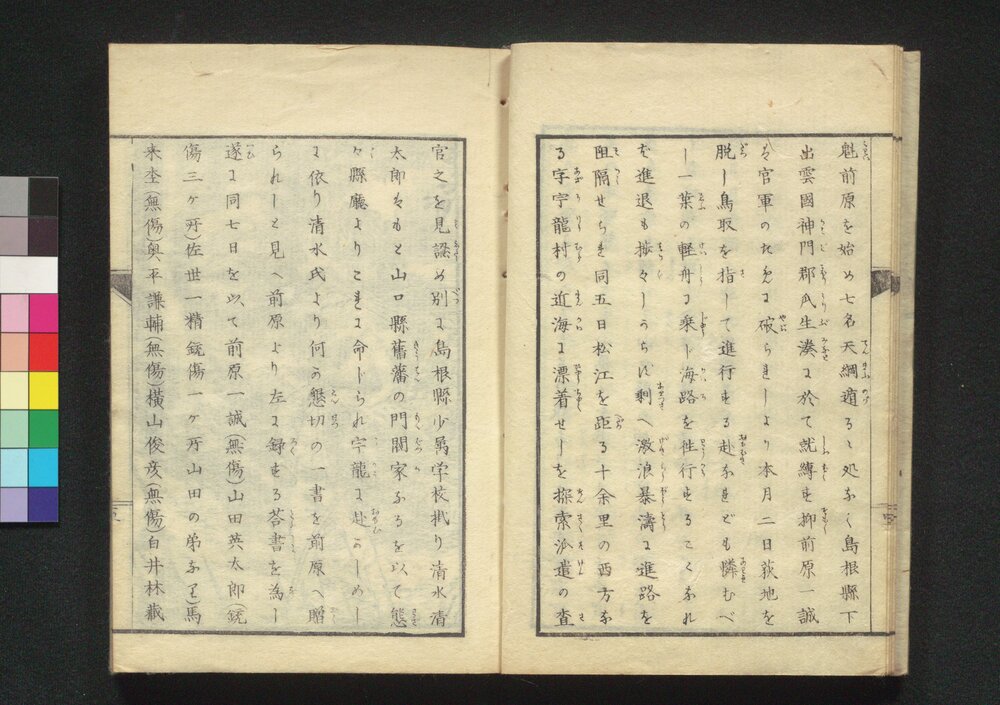 魁前原を始め七名天網遁るゝ処なく島根縣下
出雲國神門郡武生湊に於て就縛す抑前原一誠
は官軍のために破られしより本月二日荻地を
脱し鳥取を指して進行する赴なれども憐むべ
し一葉の軽舟に乗ト海路を徃行することなれ
ば進退も捗々しからず剰へ激浪暴濤に進路を
阻隔せられ同五日松江を距る十余里の西方な
る字宇龍村の近海に漂着せしを探索派遣の査
官之を見認め別に島根縣少属学校掛り清水清
太郎はもと山口縣舊藩の門閥家なるを以て態
々縣廳よりこれに命トられ宇龍に赴かしめし
に依り清水氏より何か懇切の一書を前原へ贈
られしと見へ前原より左に録する荅書を為し
遂に同七日を以て前原一誠(無傷)山田英太郎(銃
傷三ヶ所)佐世一精銃傷一ヶ所山田の弟なり馬
来杢(無傷)奥平謙輔(無傷)横山俊彦(無傷)白井林蔵